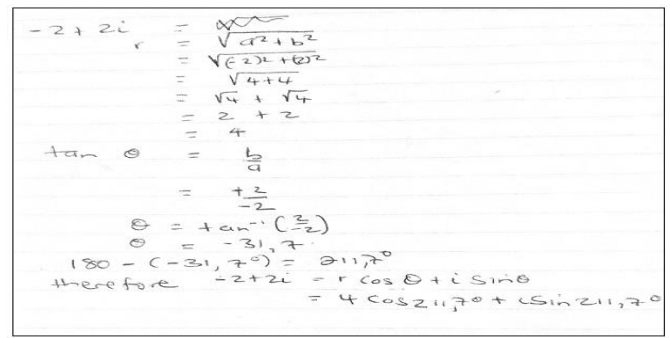 -2 + 2i =
r = √a² + b²
= √(-2)² + (2)²
= √4+4
= √4 + √4
= 2 + 2
= 4
tan θ = b/a
= +2/-2
θ = tan⁻¹ (2/-2)
θ = -31,7
180 - (-31,7°) = 211,7°
therefore -2+2i = r cos θ + i sin θ
= 4 cos 211,7° + i sin 211,7°